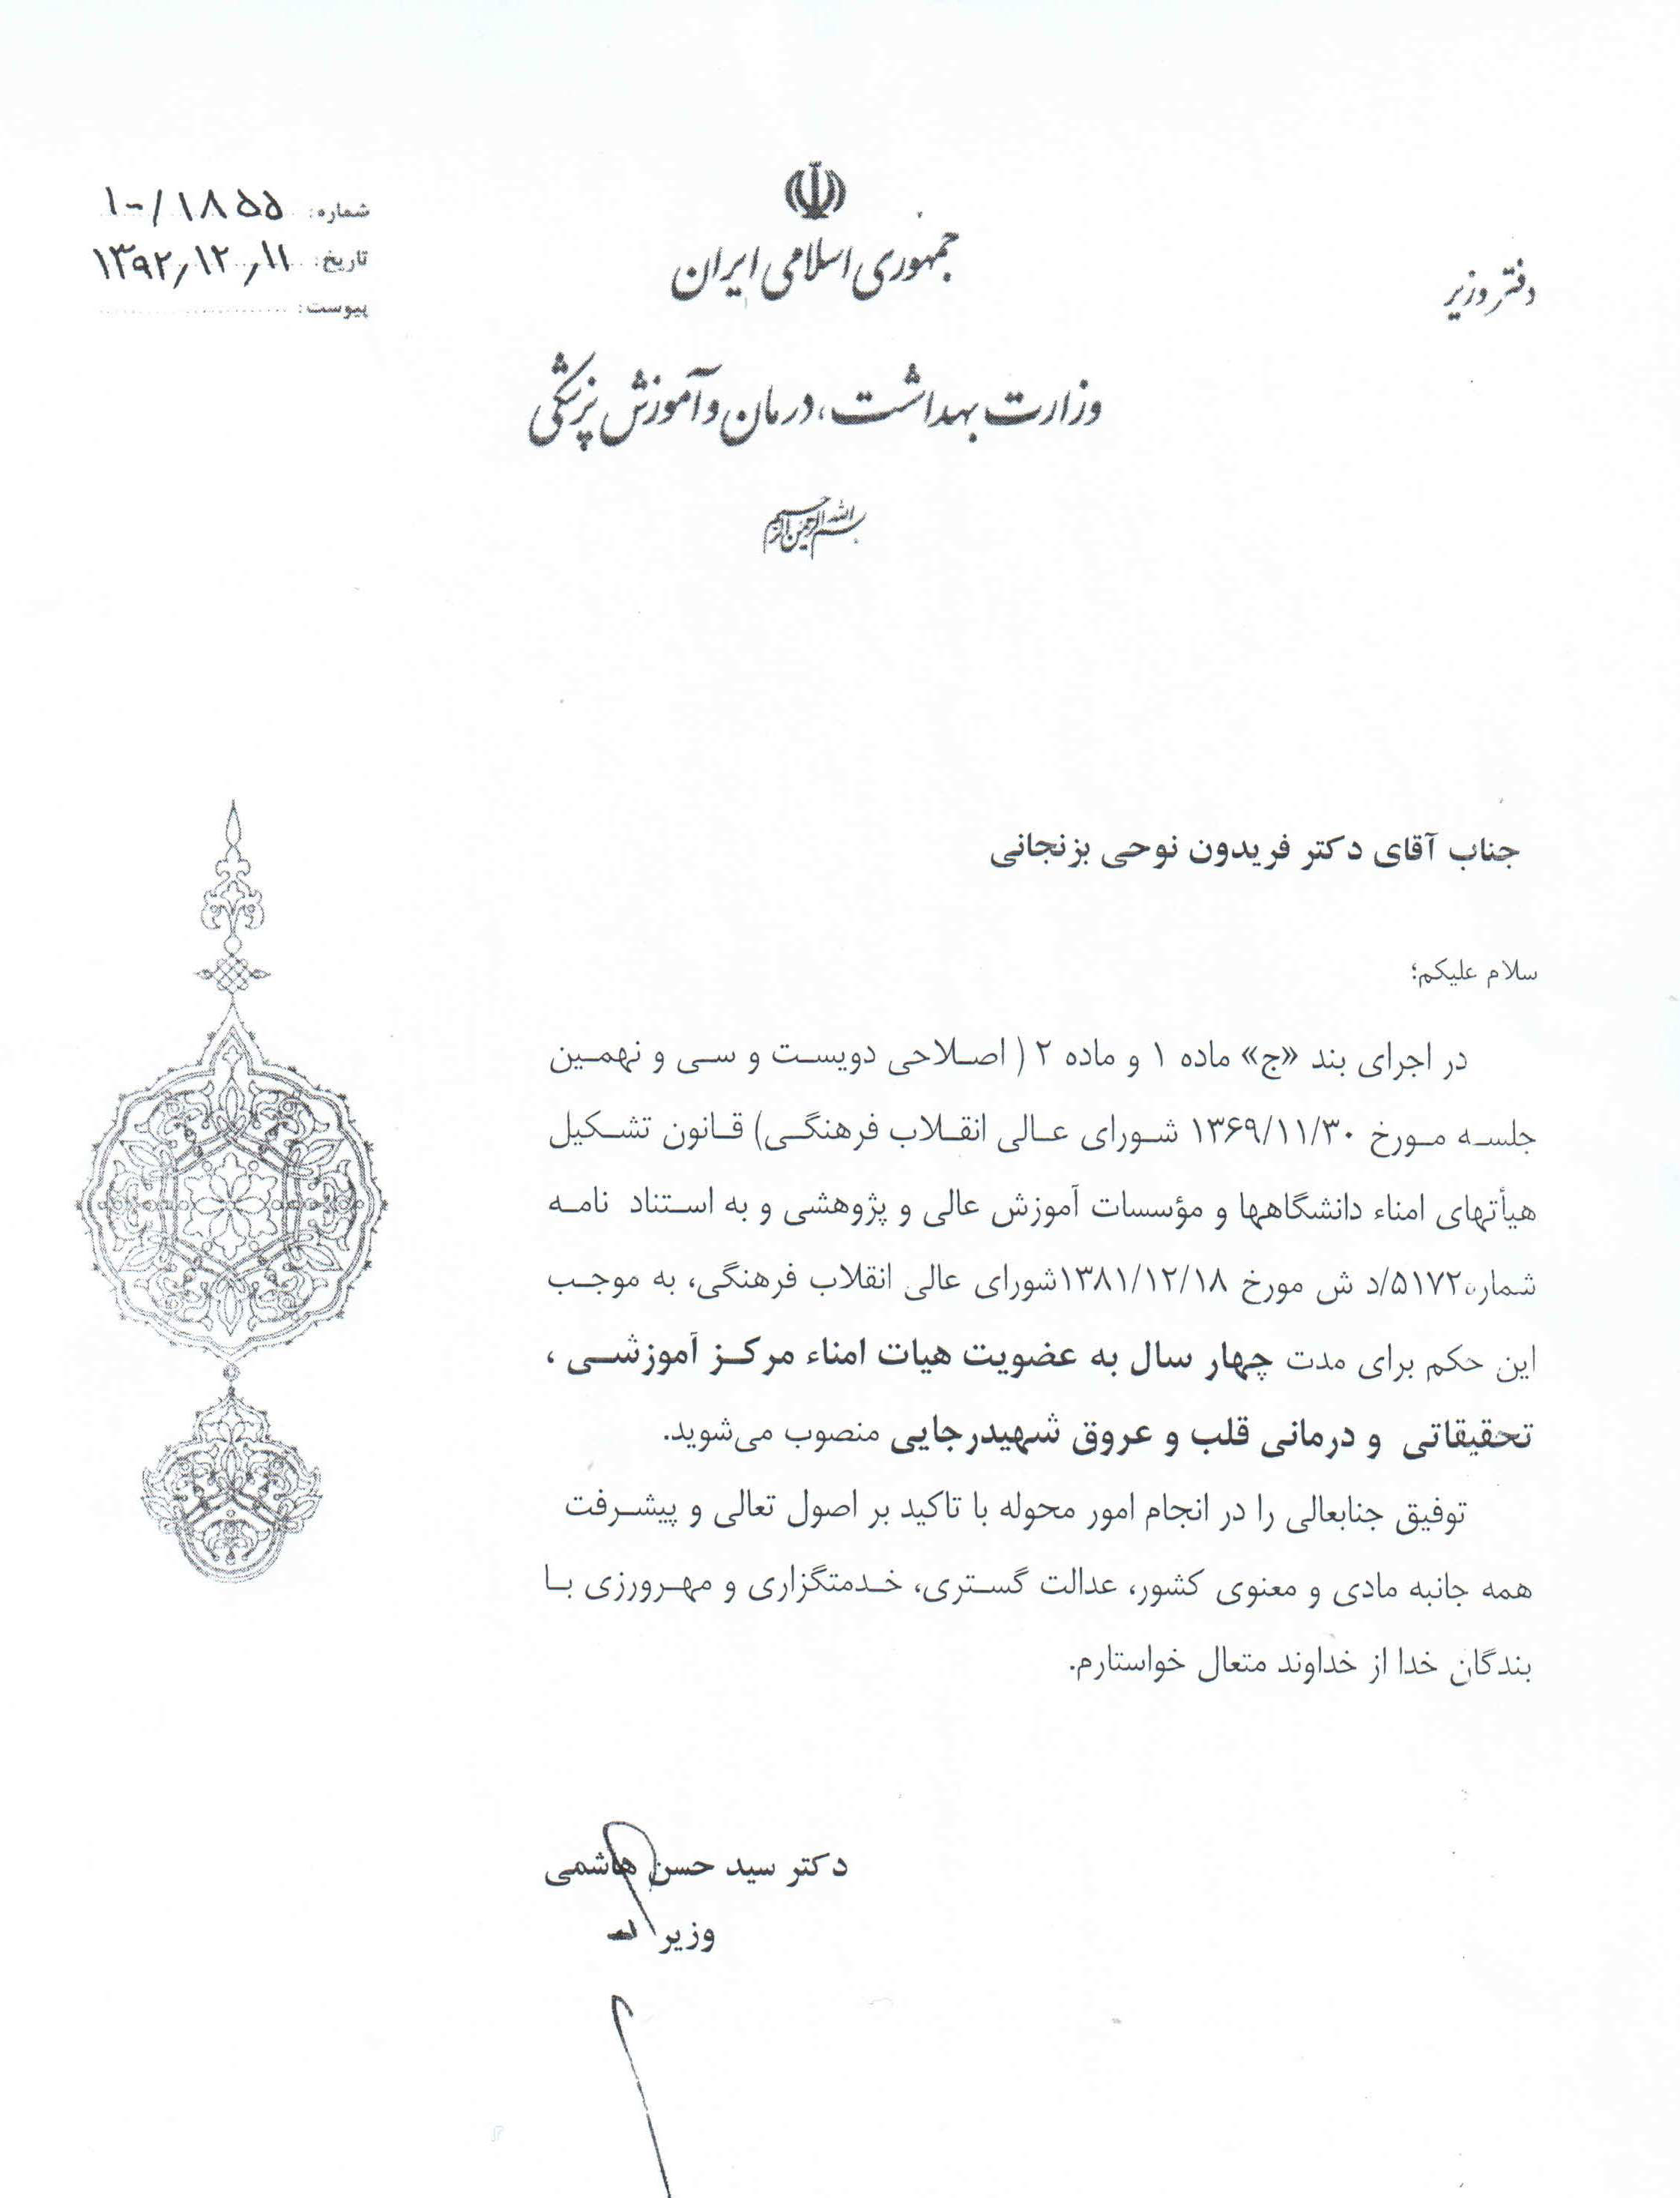 جمهوری اسلامی ایران
وزارت بهداشت، درمان و آموزش پزشکی
بسم الله الرحمن الرحیم
دفتر وزیر
شماره: ۱۰/۱۸۵۵
تاریخ: ۱۳۹۲٫۱۲٫۱۱
پیوست:
جناب آقای دکتر فریدون نوحی بزنجانی
سلام علیکم؛
در اجرای بند «ج» ماده ۱ و ماده ۲ ( اصلاحی دویست و سی و نهمین
جلسه مورخ ۱۳۶۹/۱۱/۳۰ شورای عالی انقلاب فرهنگی) قانون تشکیل
هیأتهای امناء دانشگاهها و مؤسسات آموزش عالی و پژوهشی و به استناد نامه
شماره ۵۱۷۲/د ش مورخ ۱۳۸۱/۱۲/۱۸شورای عالی انقلاب فرهنگی، به موجب
این حکم برای مدت چهار سال به عضویت هیات امناء مرکز آموزشی ،
تحقیقاتی و درمانی قلب و عروق شهیدرجایی منصوب می‌شوید.
توفیق جنابعالی را در انجام امور محوله با تاکید بر اصول تعالی و پیشرفت
همه جانبه مادی و معنوی کشور، عدالت گستری، خدمتگزاری و مهرورزی با
بندگان خدا از خداوند متعال خواستارم.
دکتر سید حسن هاشمی
وزیر